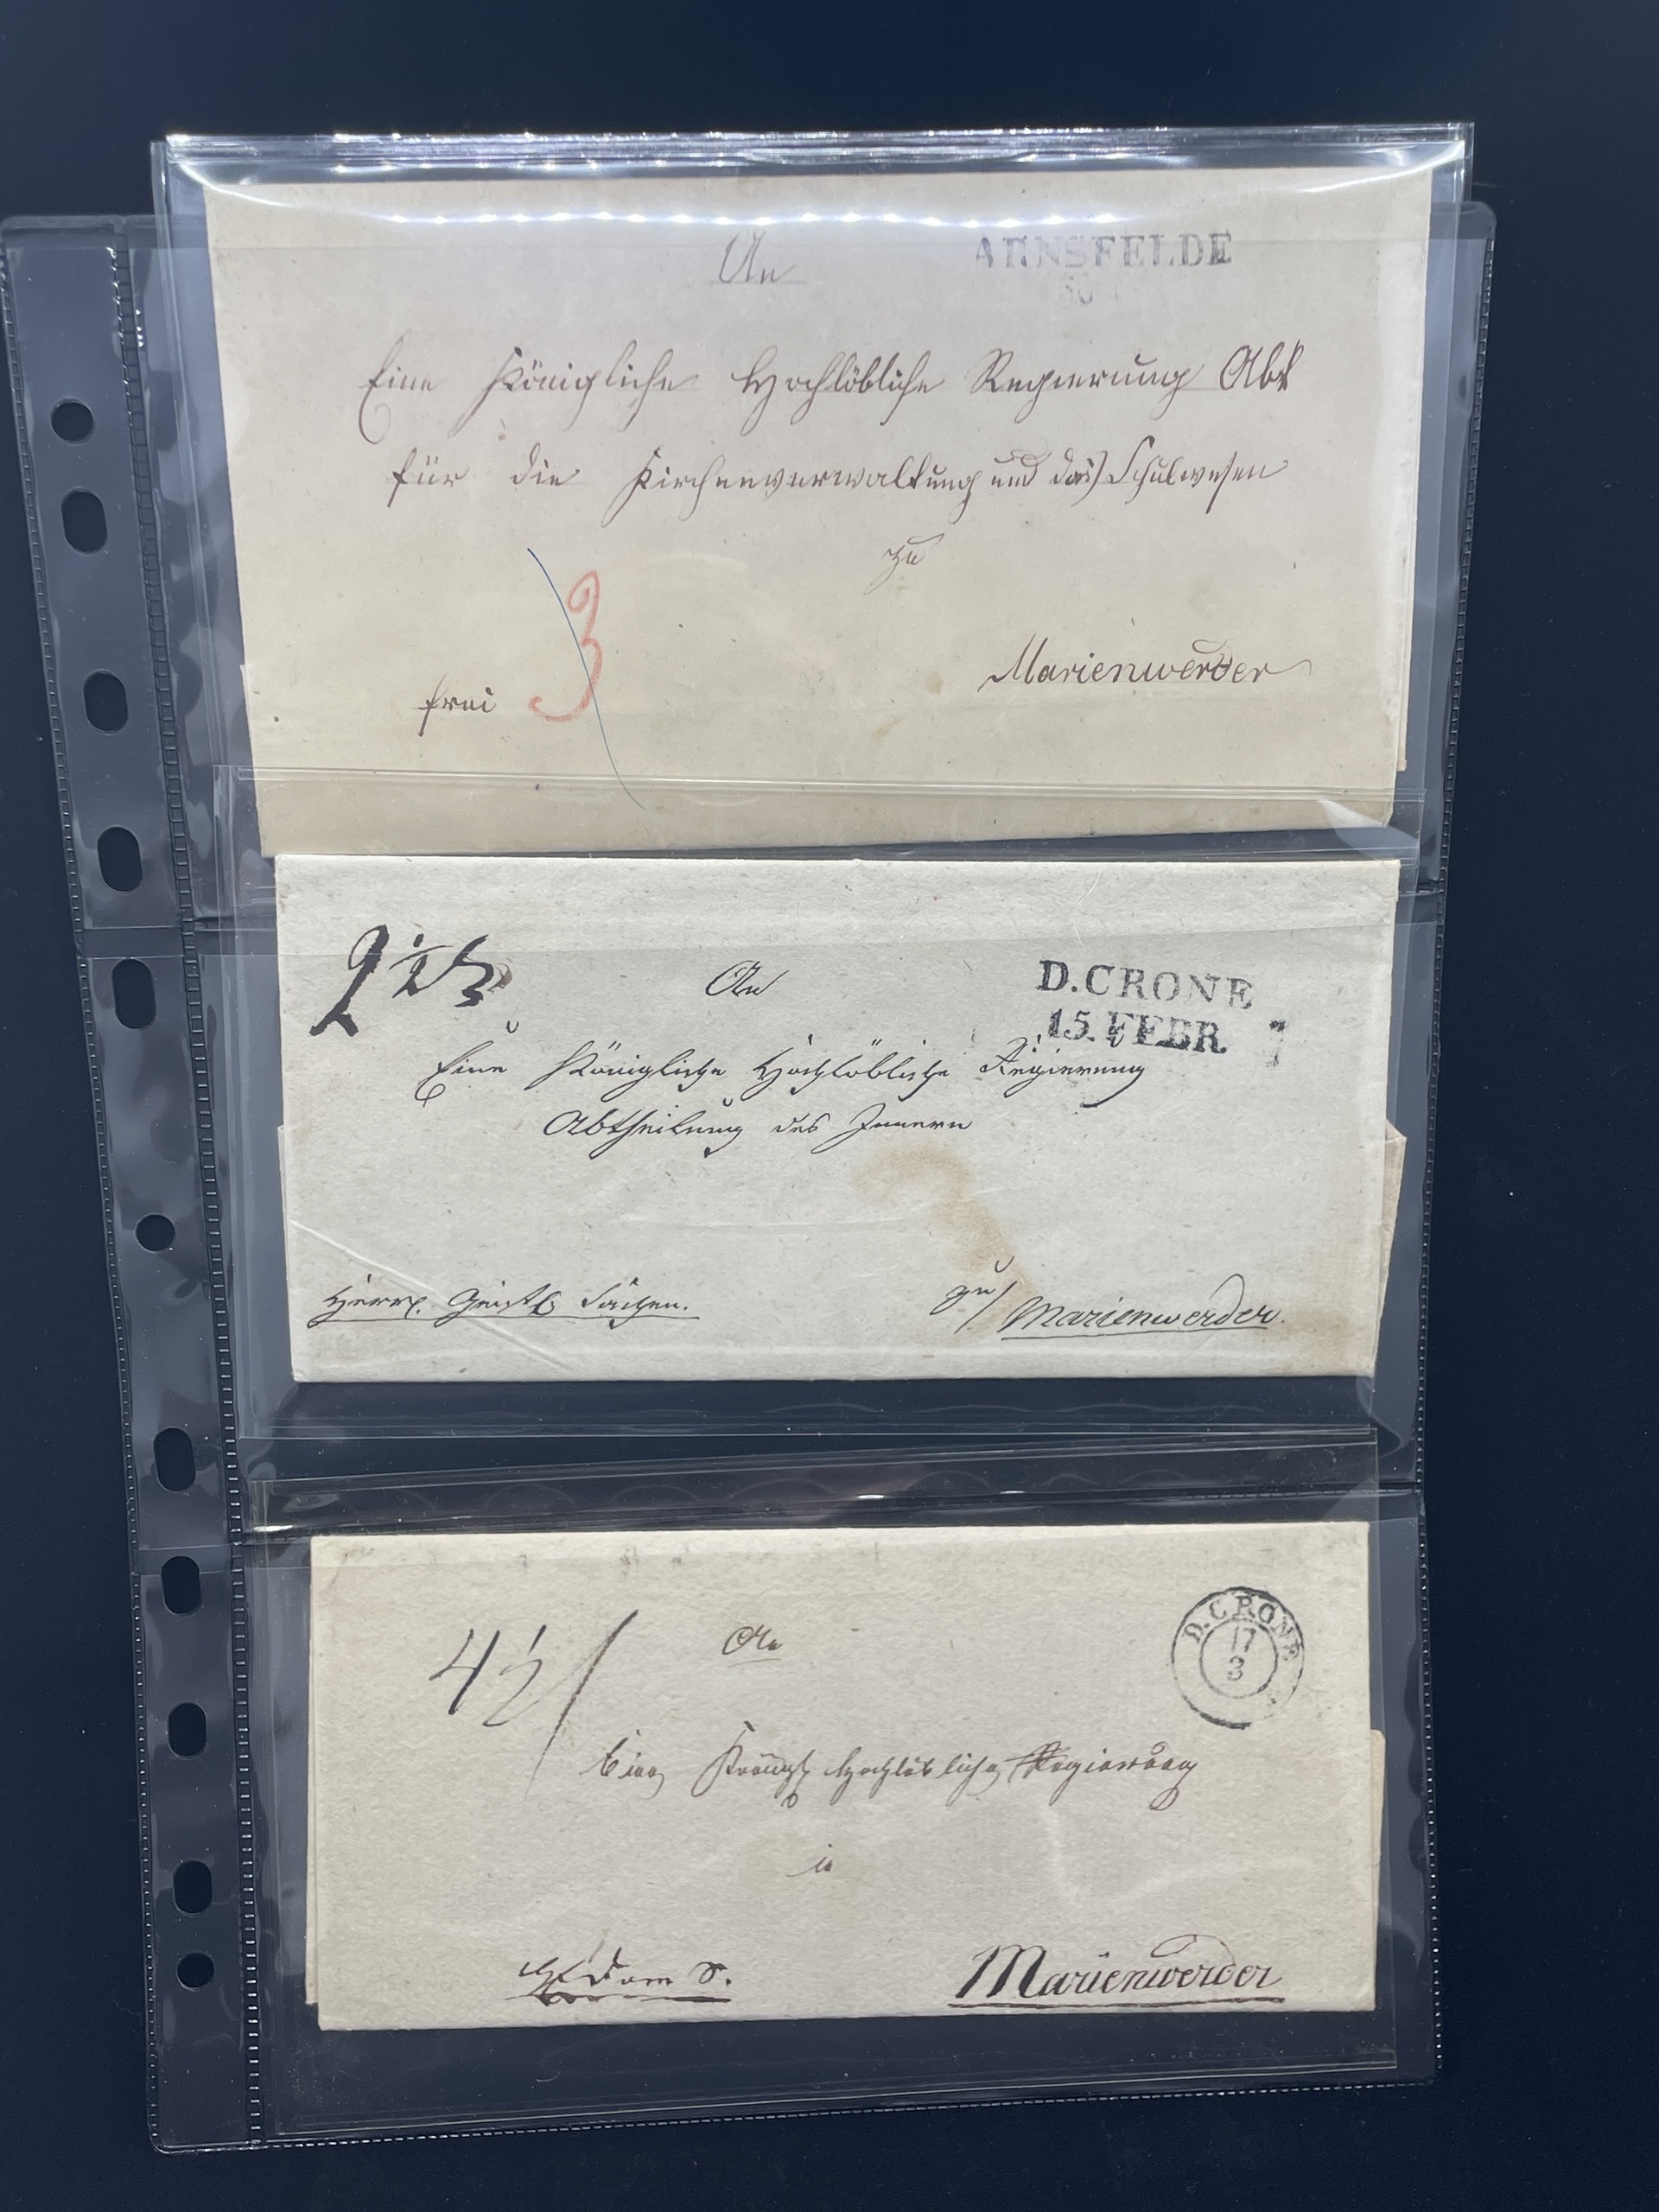 An
ARNSFELDE
30
Eine Königliche Hochlöbliche Regierung Abt
für die Kirchenverwaltung und das Schulwesen
zu
3
Marienwerder
frei
2 1/2 S
An
D. CRONE
15. FEBR. 7
Eine Königliche Hochlöbliche Regierung
Abtheilung des Innern
Herrsch. Geistl. Sachen.
zu/ Marienwerder.
4 1/2
An
D. CRONE
17
3
Eine Königl Hochlöbliche Regierung
in
Dom S.
Marienwerder